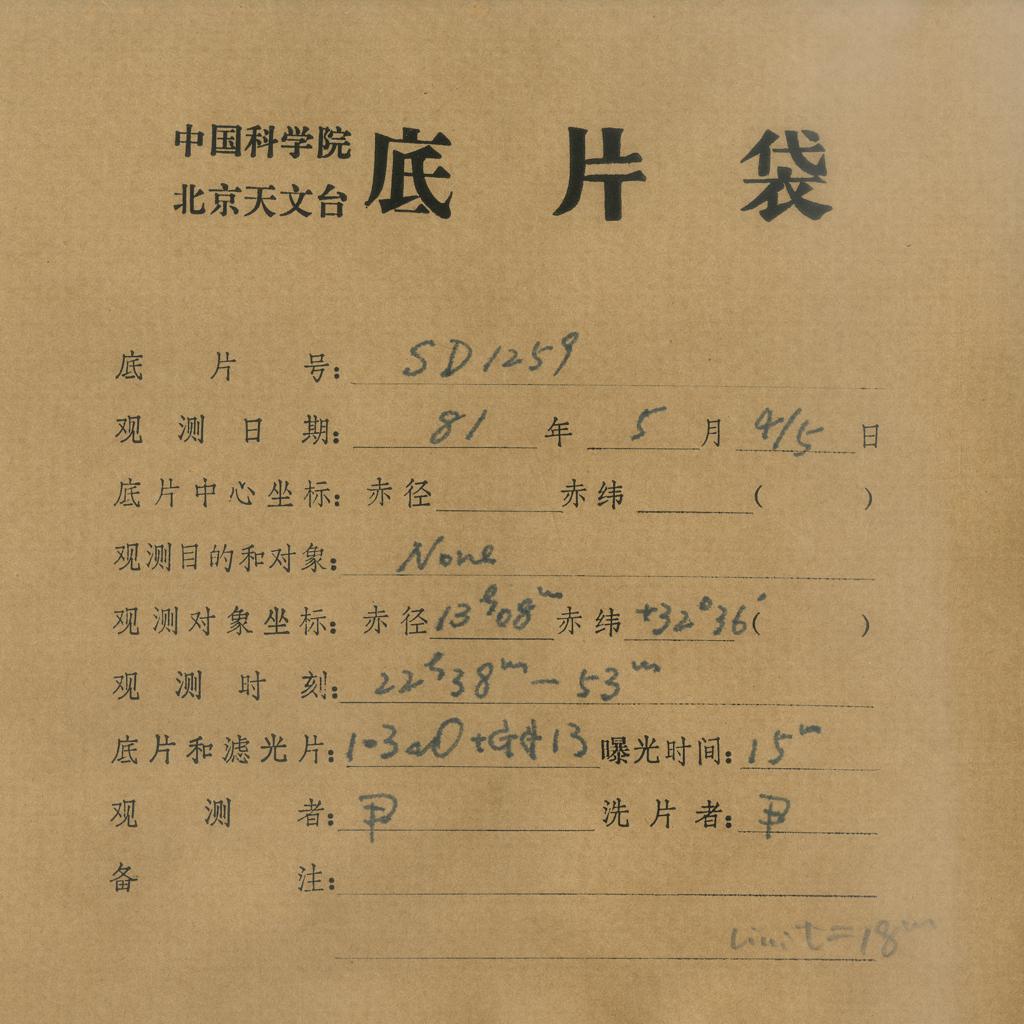 中国科学院
北京天文台
底片袋
底片号: SD1259
观测日期: 81 年 5 月 4/5 日
底片中心坐标: 赤径 赤纬 ( )
观测目的和对象: None
观测对象坐标: 赤径 13ʰ08ᵐ 赤纬 +32°36′ ( )
观测时刻: 22ʰ38ᵐ — 53ᵐ
底片和滤光片: 13 曝光时间: 15ᵐ
观测者: 洗片者:
备注:
Limit=18ᵐ